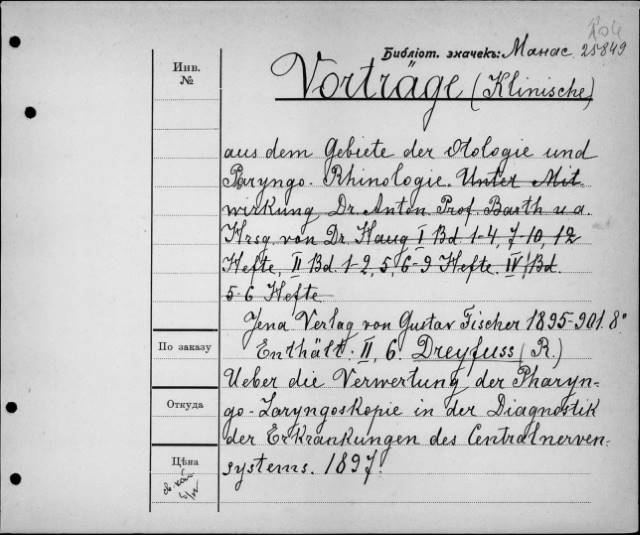 Библіот. значекъ: Манас. 25849
Инв.
№
Vorträge (Klinische)
aus dem Gebiete der Otologie und
Pharyngo-Rhinologie. Unter Mit-
wirkung Dr. Anton. Prof. Barth u. a.
Hrsg. von Dr. Haug I Bd 1-4, 7-10, 12
Hefte, II Bd. 1-2, 5, 6-9 Hefte. IV Bd.
5-6 Hefte
Jena Verlag von Gustav Fischer 1895-901. 8°
По заказу
Enthält: II, 6. Dreyfuss (R.)
Ueber die Verwertung der Pharyn-
Откуда
go-Laryngoskopie in der Diagnostik
der Erkrankungen des Centralnerven-
Цѣна
systems. 1897.